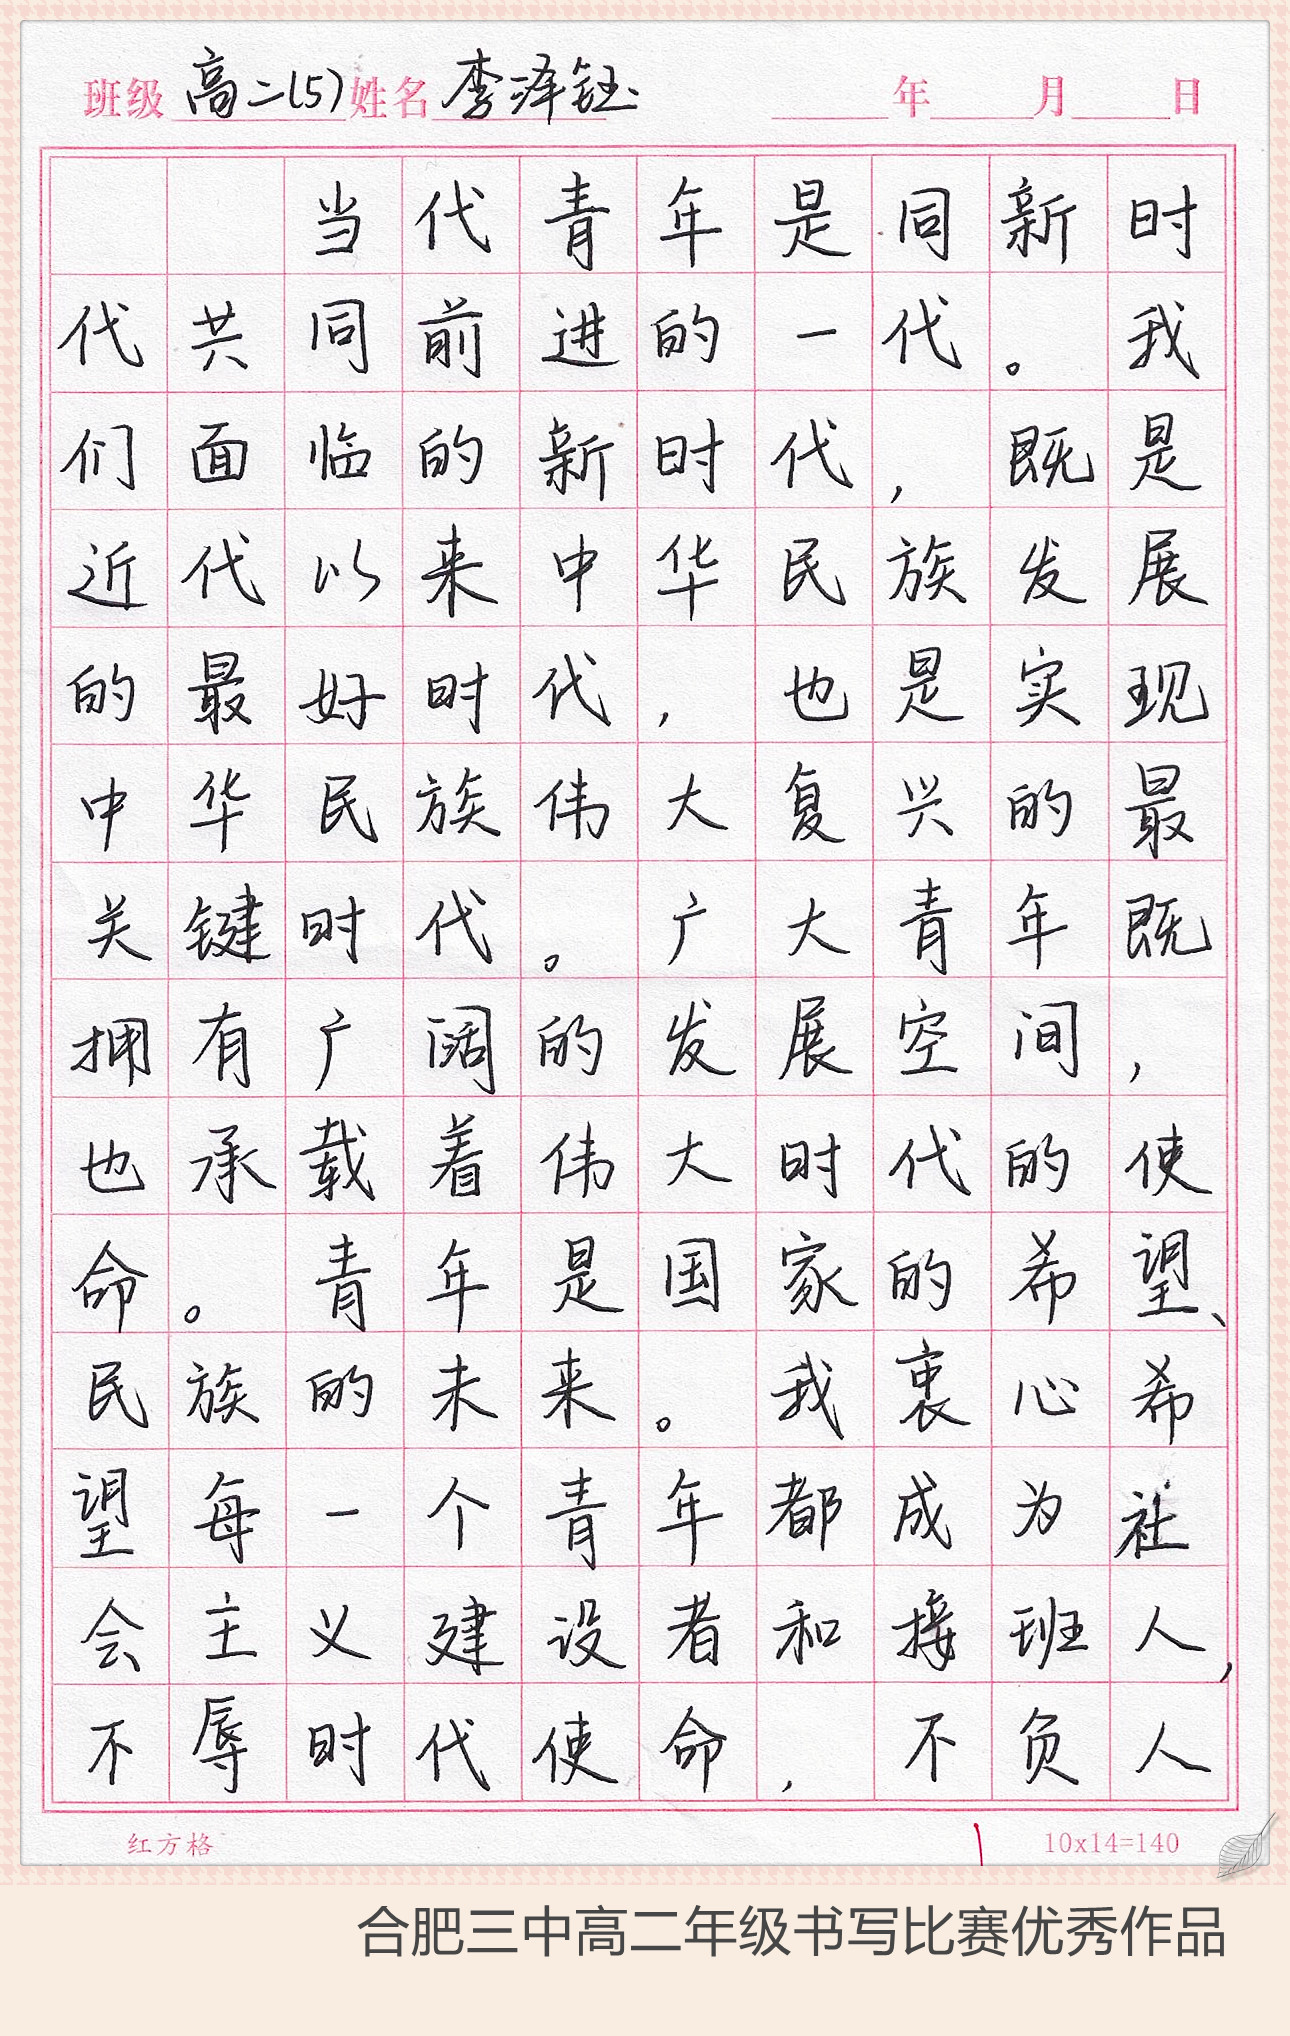 班级 高二(5) 姓名 李泽钰 年 月 日
当代青年是同新时
代共同前进的一代。我
们面临的新时代，既是
近代以来中华民族发展
的最好时代，也是实现
中华民族伟大复兴的最
关键时代。广大青年既
拥有广阔的发展空间，
也承载着伟大时代的使
命。青年是国家的希望、
民族的未来。我衷心希
望每一个青年都成为社
会主义建设者和接班人，
不辱时代使命，不负人
红方格 10x14=140
合肥三中高二年级书写比赛优秀作品